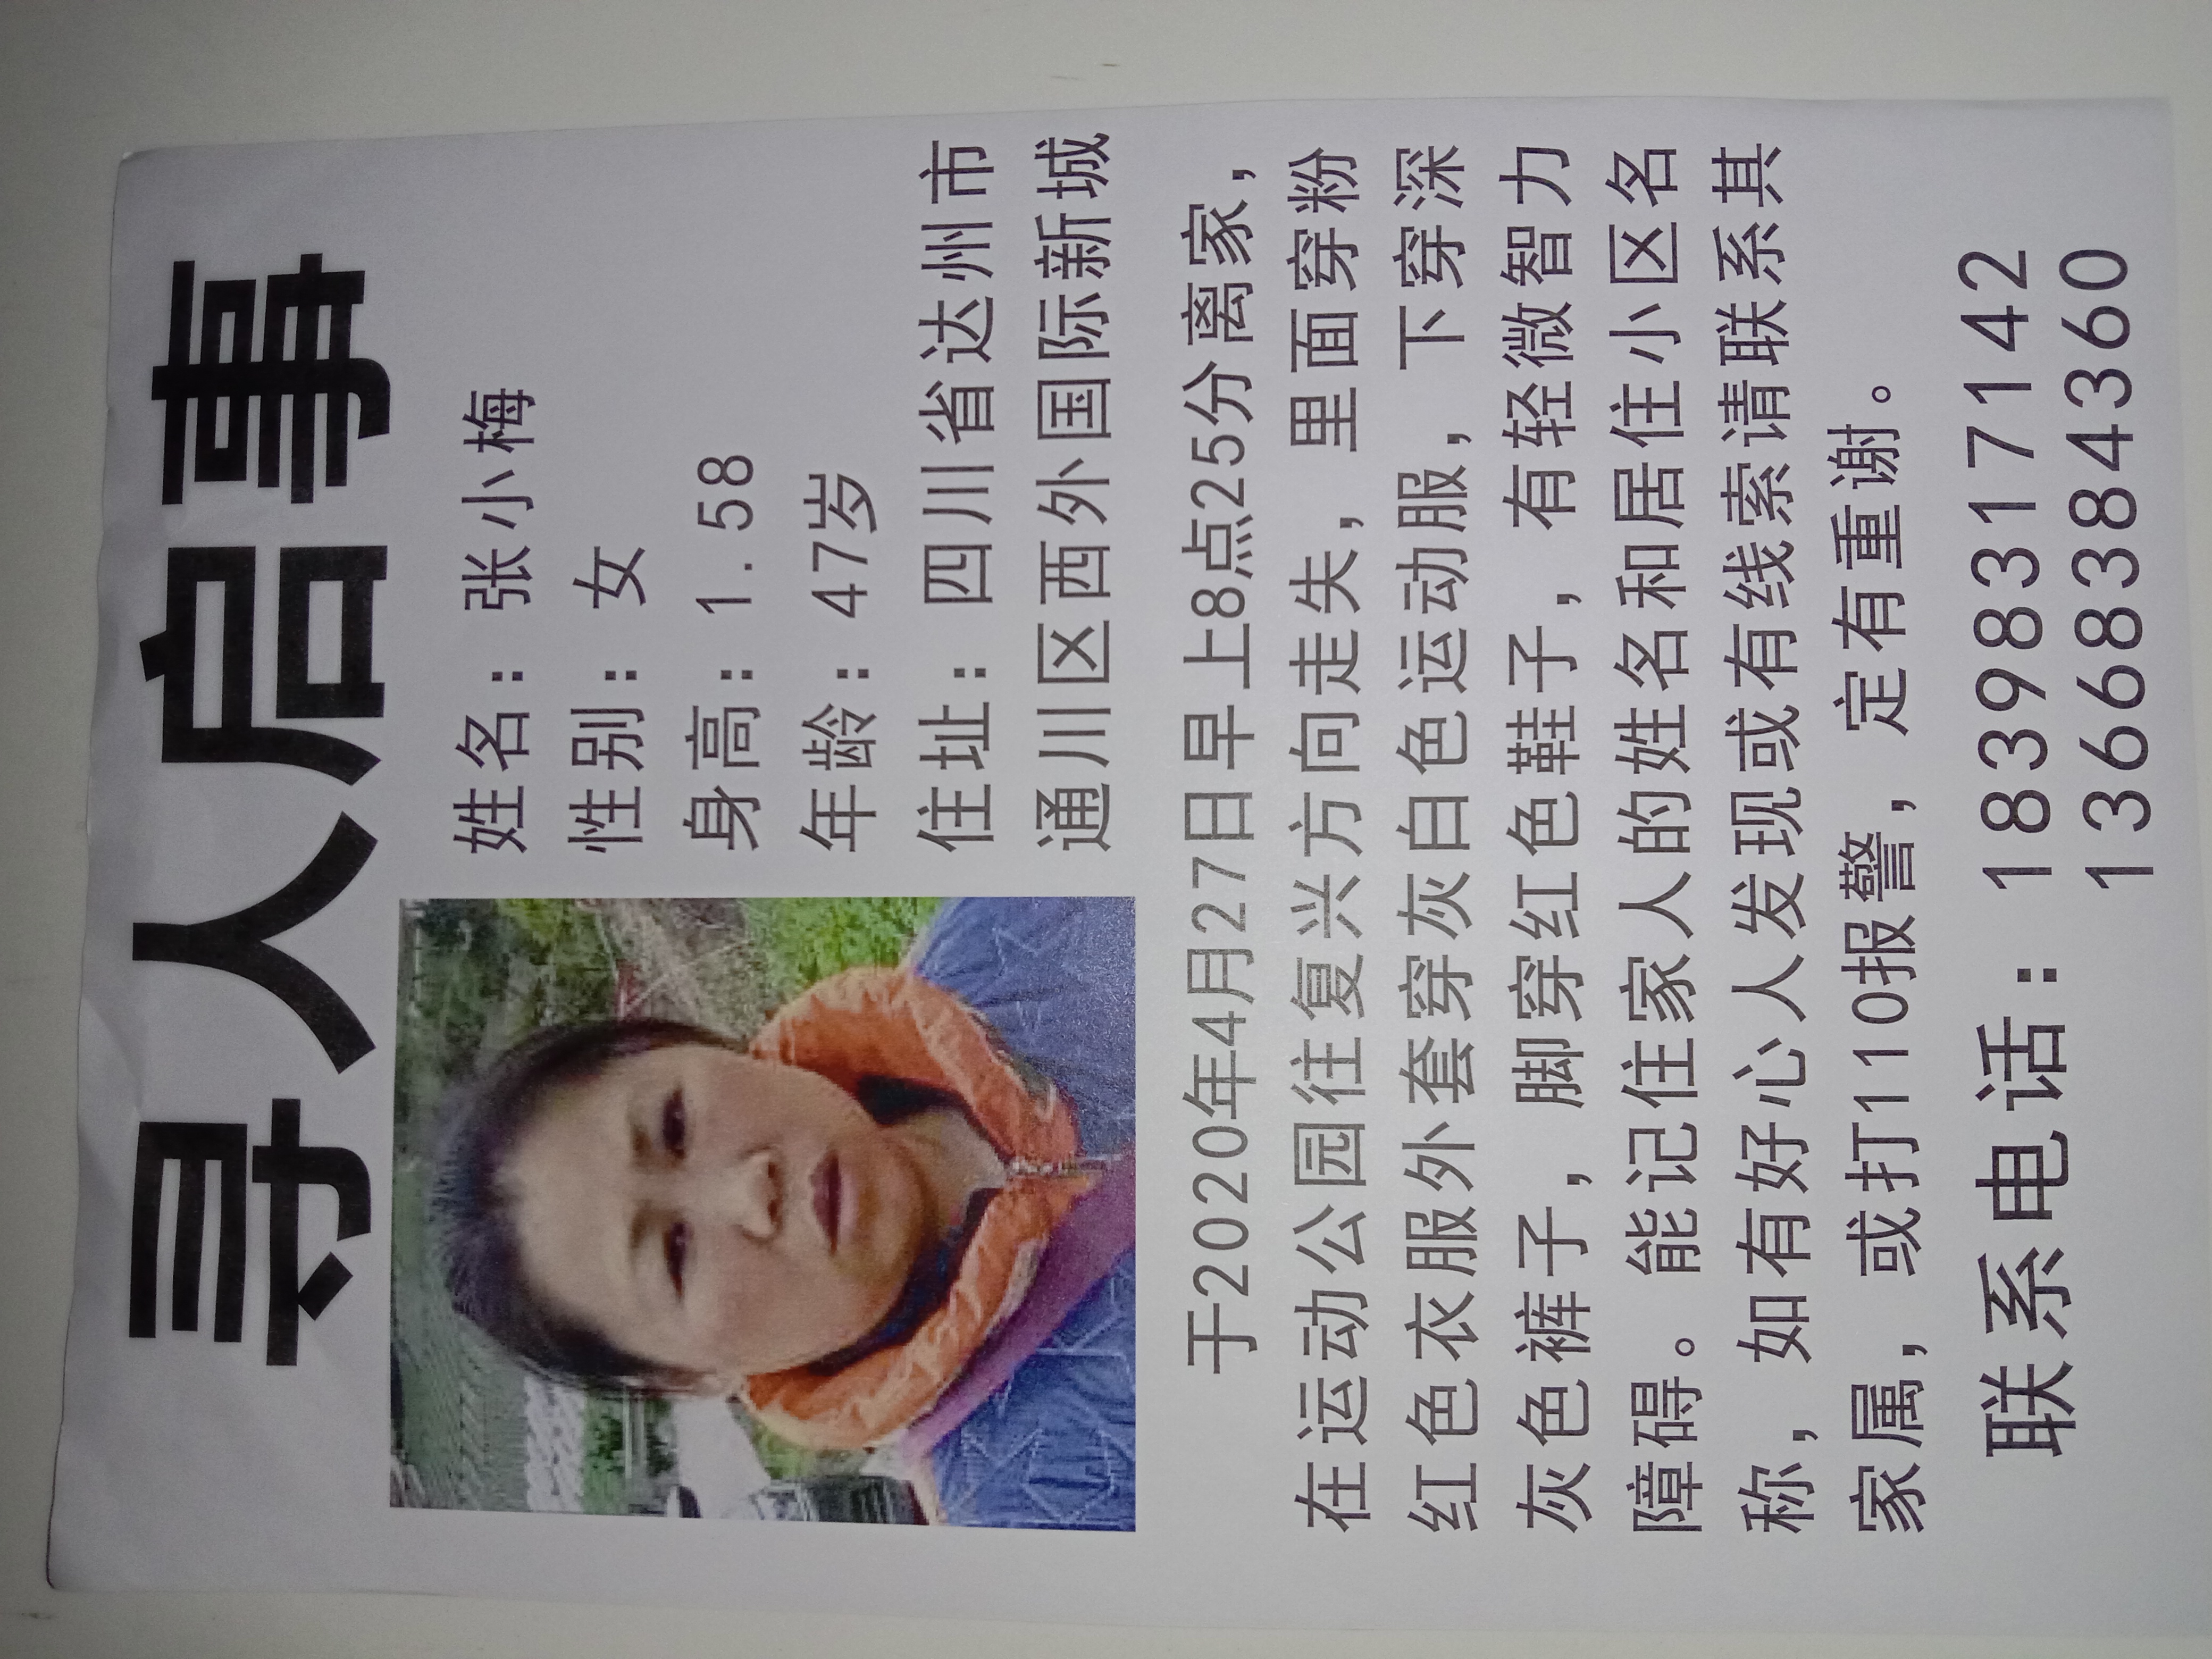 寻人启事
姓名：张小梅
性别：女
身高：1.58
年龄：47岁
住址：四川省达州市
通川区西外国际新城
于2020年4月27日早上8点25分离家，
在运动公园往复兴方向走失，里面穿粉
红色衣服外套穿灰白色运动服，下穿深
灰色裤子，脚穿红色鞋子，有轻微智力
障碍。能记住家人的姓名和居住小区名
称，如有好心人发现或有线索请联系其
家属，或打110报警，定有重谢。
联系电话：18398317142
13668384360